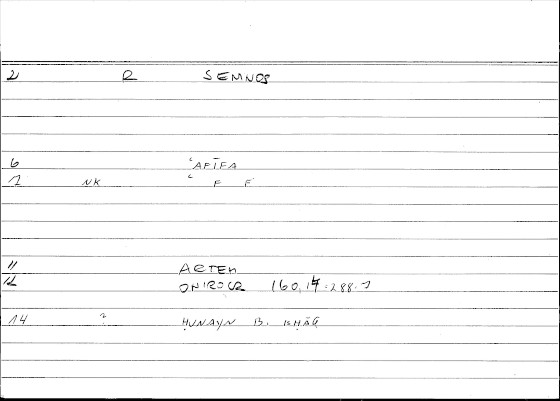 2 R SEMNOS
6 ʿAFĪFA
1 NK ʿ F F
11 ARTEM
12 ONIROCR 160,14 = 288.7
14 ? ḤUNAYN B. ISḤĀQ